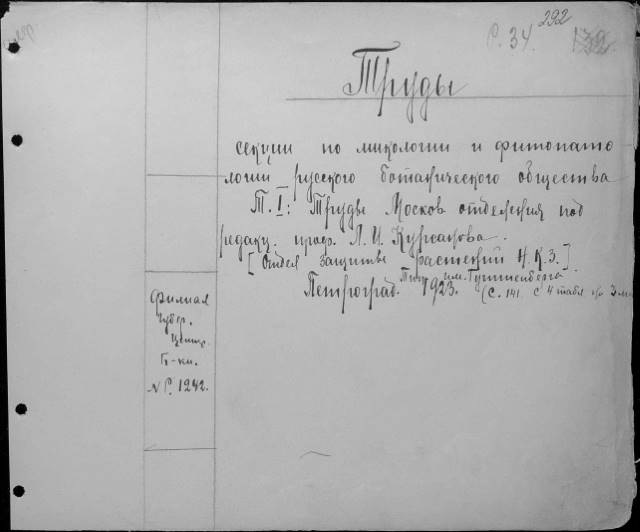 292
Р. 34. 132
Труды
секции по микологии и фитопато
логии русского ботанического общества
Т. I: Труды Москов отделения под
редакц. проф. Л. И. Курсанова.
[Отдел защиты растений Н. К. З.]
Петроград. Тип. им. Гуттенберга
1923. (С. 141. с 4 табл.
Филиал
Губер.
Центр.
Б-ки.
№ Р. 1242.